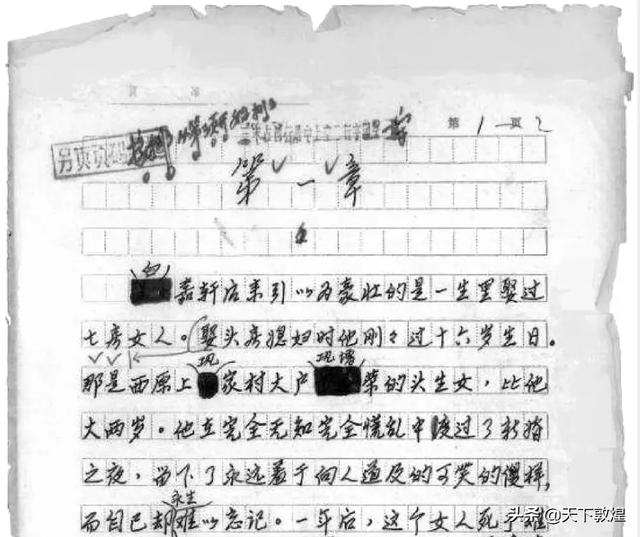 第1—页2
第一章
白
嘉轩后来引以为豪壮的是一生里娶过
七房女人。娶头房媳妇时他刚々过十六岁生日。
巩 巩增
那是西原上家村大户荣的头生女，比他
大两岁。他在完全无知完全慌乱中度过了新婚
之夜，留下了永远羞于向人道及的可笑的傻样，
永生
而自己却难以忘记。一年后，这个女人死于难
头条@天下敦煌